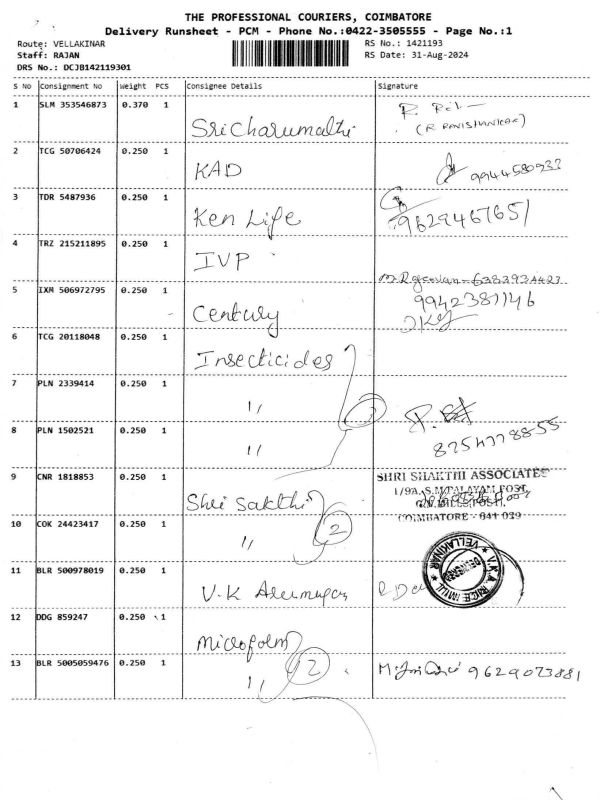 THE PROFESSIONAL COURIERS, COIMBATORE
Delivery Runsheet - PCM - Phone No.:0422-3505555 - Page No.:1
Route: VELLAKINAR
RS No.: 1421193
Staff: RAJAN
RS Date: 31-Aug-2024
DRS No.: DCJB142119301
S No Consignment No Weight PCS Consignee Details Signature
1 SLM 353546873 0.370 1
Sricharumathi
(R RAVISHANKAR)
2 TCG 50706424 0.250 1
KAD
3 TDR 5487936 0.250 1
Ken Life 9629467651
4 TRZ 215211895 0.250 1
IVP
5 IXM 506972795 0.250 1
Century 9942387146
6 TCG 20118048 0.250 1
Insecticides
7 PLN 2339414 0.250 1
"
8 PLN 1502521 0.250 1
" 8254778855
9 CNR 1818853 0.250 1
SHRI SHAKTHI ASSOCIATES
1/9A, S.M.PALAYAM POST,
G.N. MILLS (POST),
COIMBATORE - 641 029
Shri Sakthi
10 COK 24423417 0.250 1
" 2
11 BLR 500978019 0.250 1
V.K Arumugam
V.K.A. RICE MILL
VELLAKINAR
DELIVERED
12 DDG 859247 0.250 1
13 BLR 5005059476 0.250 1
" 2
9629073881